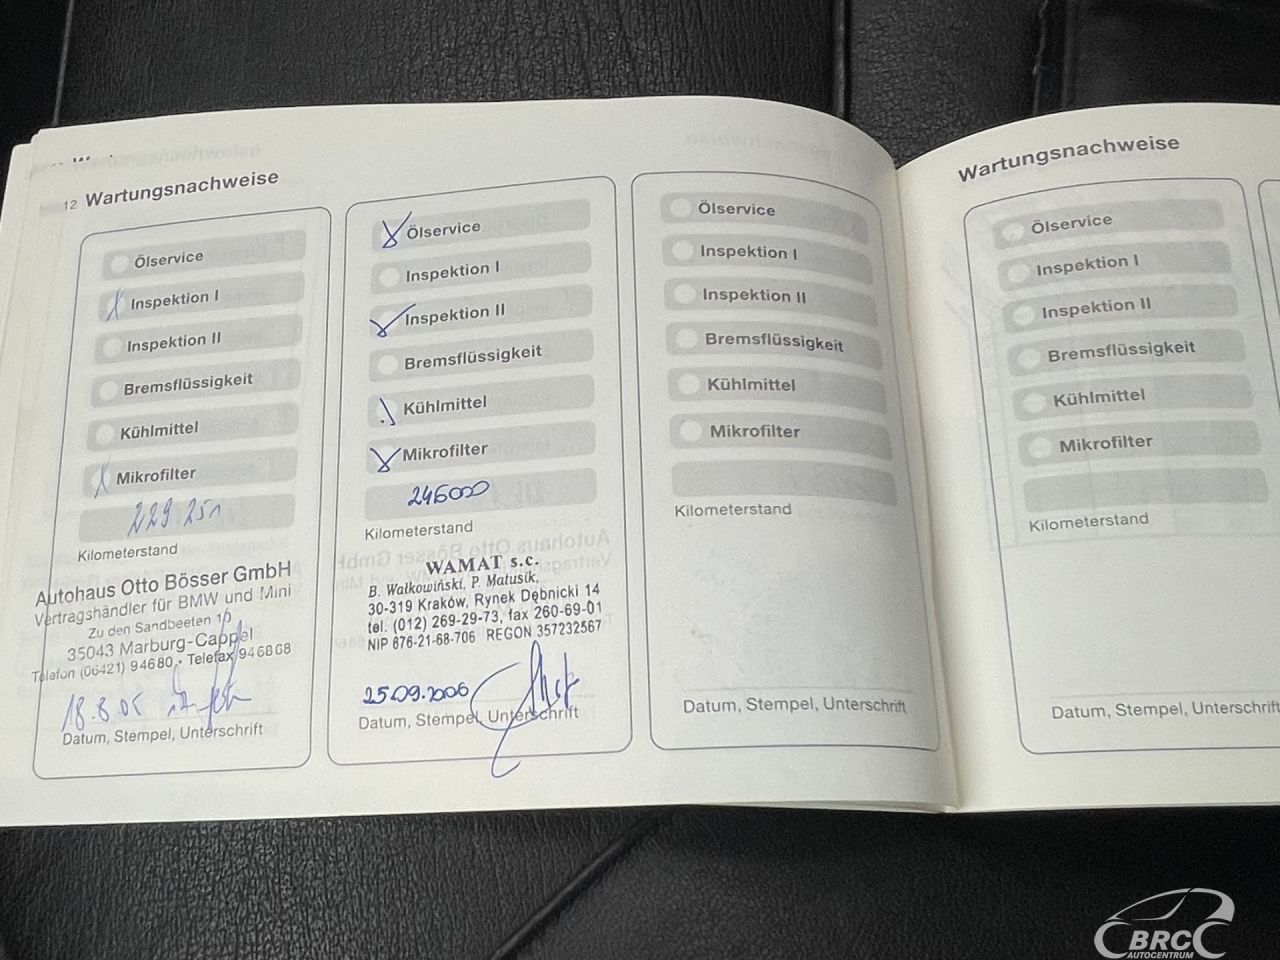 12 Wartungsnachweise
Ölservice
Inspektion I
Inspektion II
Bremsflüssigkeit
Kühlmittel
Mikrofilter
229.251
Kilometerstand
Autohaus Otto Bösser GmbH
Vertragshändler für BMW und Mini
Zu den Sandbeeten 1b
35043 Marburg-Cappel
Telefon (06421) 94680 • Telefax 946868
18.8.05
Datum, Stempel, Unterschrift
Ölservice
Inspektion I
Inspektion II
Bremsflüssigkeit
Kühlmittel
Mikrofilter
246000
Kilometerstand
WAMAT s.c.
B. Wałkowiński, P. Matusik,
30-319 Kraków, Rynek Dębnicki 14
tel. (012) 269-29-73, fax 260-69-01
NIP 676-21-68-706 REGON 357232567
25.09.2006
Datum, Stempel, Unterschrift
Ölservice
Inspektion I
Inspektion II
Bremsflüssigkeit
Kühlmittel
Mikrofilter
Kilometerstand
Datum, Stempel, Unterschrift
Wartungsnachweise
Ölservice
Inspektion I
Inspektion II
Bremsflüssigkeit
Kühlmittel
Mikrofilter
Kilometerstand
Datum, Stempel, Unterschrift
BRC
AUTOCENTRUM